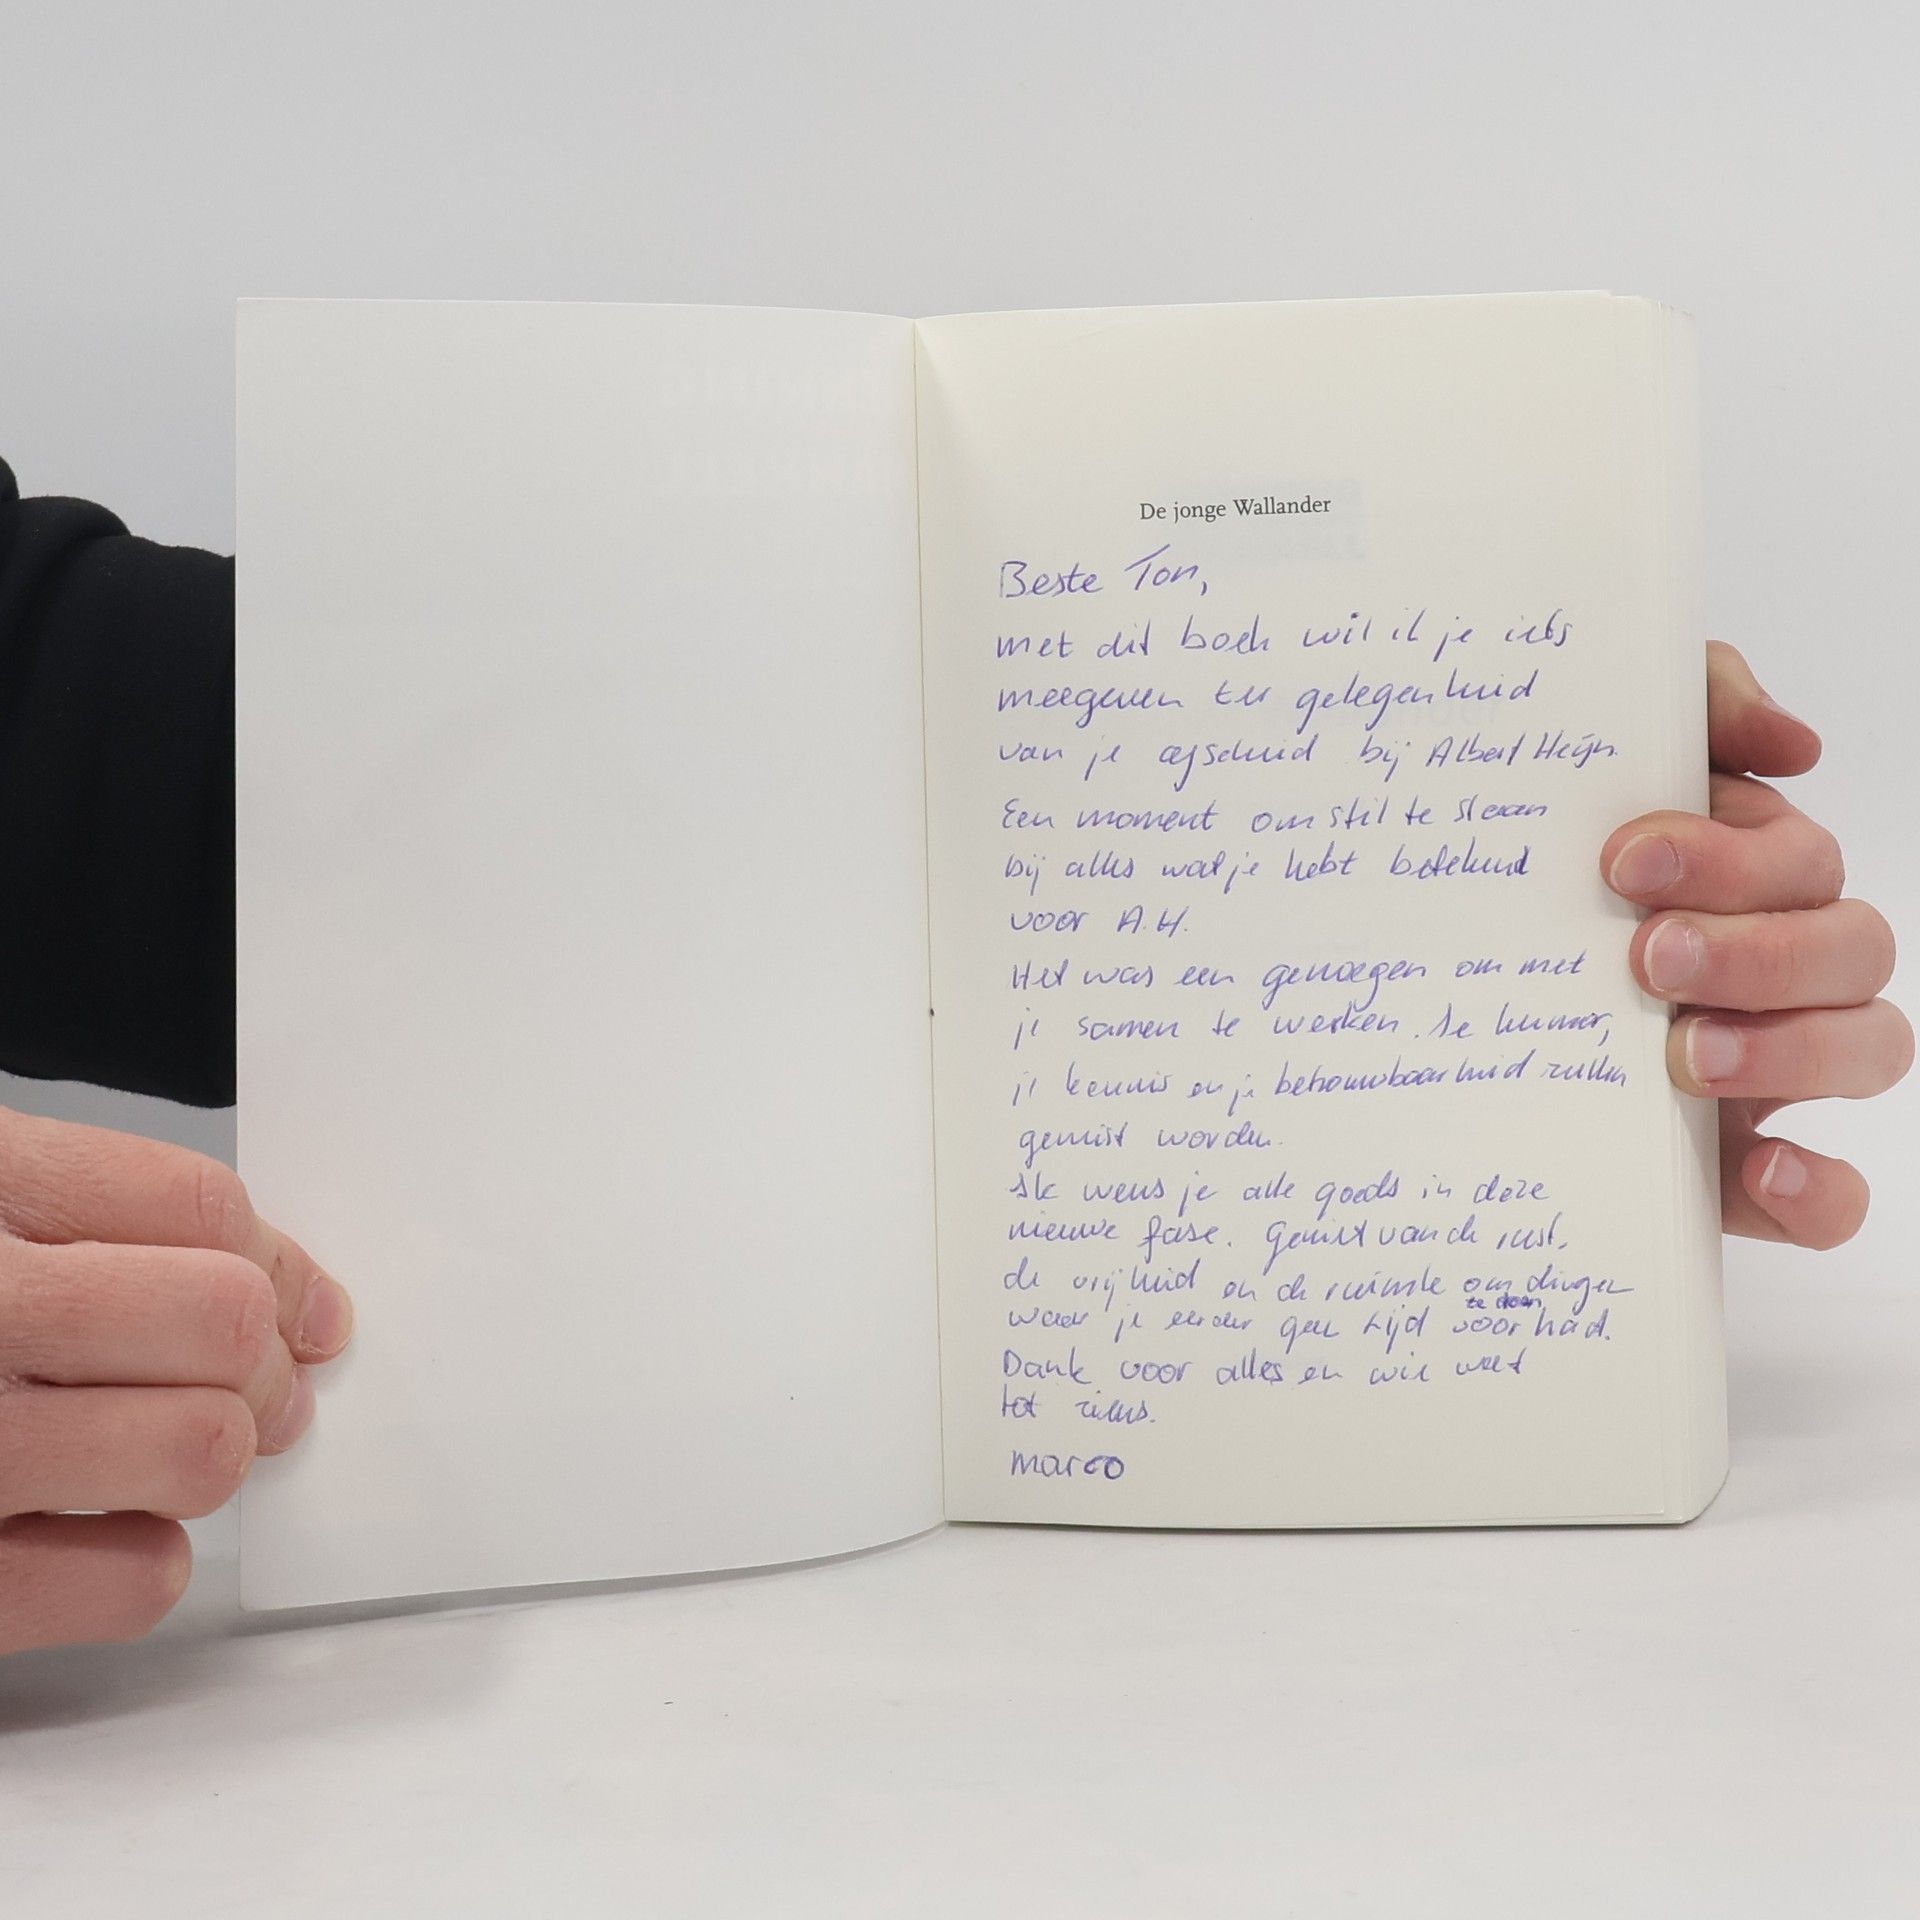 De jonge Wallander
Beste Ton,
met dit boek wil ik je iets
meegeven ter gelegenheid
van je afscheid bij Albert Heijn.
Een moment om stil te staan
bij alles wat je hebt betekend
voor A.H.
Het was een genoegen om met
je samen te werken. Je humor,
je kennis en je betrouwbaarheid zullen
gemist worden.
Ik wens je alle goeds in deze
nieuwe fase. Geniet van de rust,
de vrijheid en de ruimte om dingen
te doen
waar je eerder geen tijd voor had.
Dank voor alles en wie weet
tot ziens.
Marco